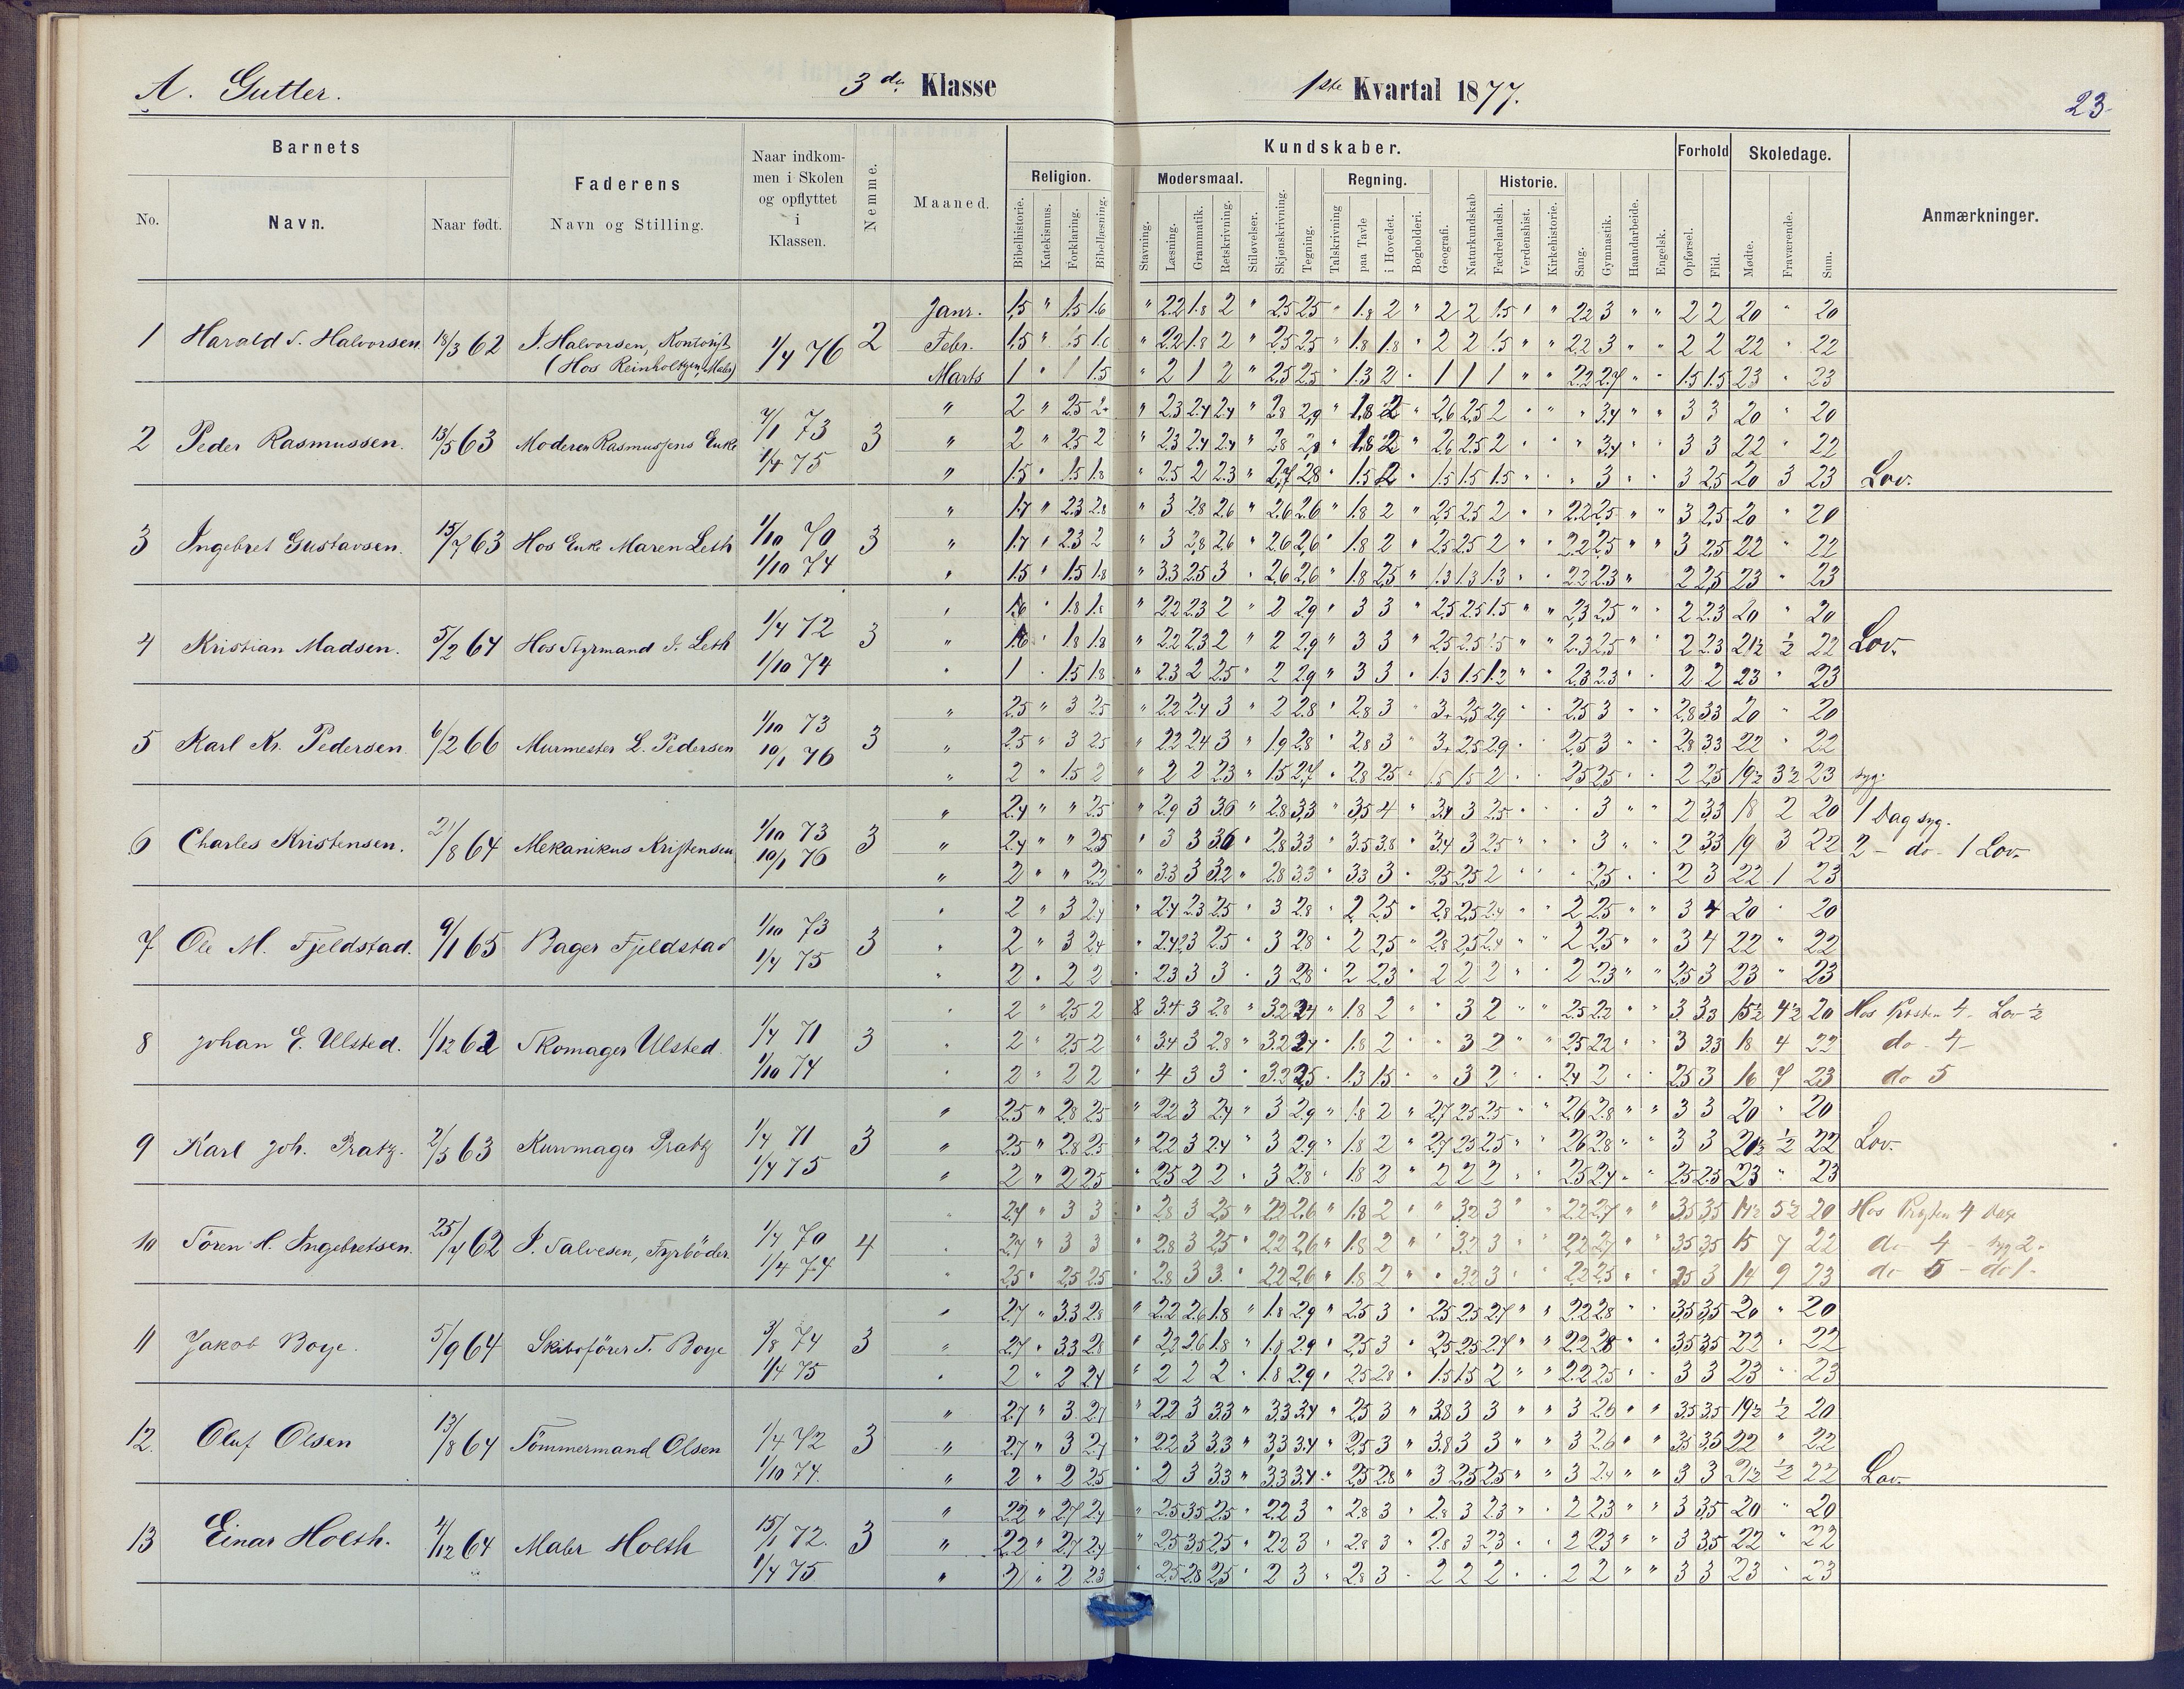 A. Gutter.
3 die Klasse
1ste Kvartal 1877.
23
Barnets
Kundskaber.
Forhold
Skoledage.
No.
Navn.
Naar født.
Faderens
Navn og Stilling.
Naar indkom-
men i Skolen
og opflyttet
i
Klassen.
Nemme.
Maaned.
Religion.
Bibelhistorie.
Katekismus.
Forklaring.
Bibellæsning.
Modersmaal.
Stavning.
Læsning.
Grammatik.
Retskrivning.
Stiløvelser.
Skjønskrivning.
Tegning.
Regning.
Talskrivning
paa Tavle
i Hovedet.
Bogholderi.
Geografi.
Naturkundskab
Historie.
Fædrelandsh.
Verdenshist.
Kirkehistorie.
Sang.
Gymnastik.
Haandarbeide.
Engelsk.
Opførsel.
Flid.
Mødte.
Fraværende.
Sum.
Anmærkninger.
1 Harald S. Halvorsen 18/3 62 J. Halvorsen, Kontorist (Hos Reinholtzen, Maler) 1/4 76 2
Janr. 1.5 " 1.5 1.6 " 2.2 1.8 2 " 2.5 2.5 " 1.8 2 " 2 2 1.5 " " 2.2 3 " " 2 2 20 " 20
Febr. 1.5 " 1.5 1.6 " 2.2 1.8 2 " 2.5 2.5 " 1.8 1.8 " 2 2 1.5 " " 2.2 3 " " 2 2 22 " 22
Marts 1 " 1 1.5 " 2 1 2 " 2.5 2.5 " 1.3 2 " 1 1 1 " " 2.2 2.7 " " 1.5 1.5 23 " 23
2 Peder Rasmussen. 13/5 63 Moderen Rasmussens Enke 7/1 73 1/4 75 3
" 2 " 2.5 2 " 2.3 2.4 2.4 " 2.8 2.9 " 1.8 2 " 2.6 2.5 2 " " " 3.4 " " 3 3 20 " 20
" 2 " 2.5 2 " 2.3 2.4 2.4 " 2.8 2.9 " 1.8 2 " 2.6 2.5 2 " " " 3.4 " " 3 3 22 " 22
" 1.5 " 1.5 1.8 " 2.5 2 2.3 " 2.7 2.8 " 1.5 2 " 1.5 1.5 1.5 " " " 3 " " 3 2.5 20 3 23 Lov.
3 Ingebret Gustavsen. 15/7 63 Hos Enke Maren Leth 1/10 70 1/10 74 3
" 1.7 " 2.3 2.8 " 3 2.8 2.6 " 2.6 2.6 " 1.8 2 " 2.5 2.5 2 " " 2.2 2.5 " " 3 2.5 20 " 20
" 1.7 " 2.3 2 " 3 2.8 2.6 " 2.6 2.6 " 1.8 2 " 2.5 2.5 2 " " 2.2 2.5 " " 3 2.5 22 " 22
" 1.5 " 1.5 1.8 " 3.3 2.5 3 " 2.6 2.6 " 1.8 2.5 " 1.3 1.3 1.3 " " 2.2 2.3 " 2 2.5 23 " 23
4 Kristian Madsen. 5/2 64 Hos Styrmand J. Leth 1/4 72 1/10 74 3
" 1.6 " 1.8 1.8 " 2.2 2.3 2 " 2 2.9 " 3 3 " 2.5 2.5 1.5 " " 2.3 2.5 " " 2 2.3 20 " 20
" 1.6 " 1.8 1.8 " 2.2 2.3 2 " 2 2.9 " 3 3 " 2.5 2.5 1.5 " " 2.3 2.5 " " 2 2.3 21½ ½ 22 Lov.
" 1 " 1.5 1.8 " 2.3 2 2.5 " 2 2.9 " 3 3 " 1.3 1.5 1.2 " " 2.3 2.3 " " 2 2 23 " 23
5 Karl Kr. Pedersen 6/2 66 Murmester L. Pedersen 1/10 73 10/1 76 3
" 2.5 " 3 2.5 " 2.2 2.4 3 " 2 2.8 " 2.8 3 " 3+ 2.5 2.9 " " 2.5 3 " " 2.8 3.3 20 " 20
" 2.5 " 3 2.5 " 2.2 2.4 3 " 1.9 2.8 " 2.8 3 " 3+ 2.5 2.9 " " 2.5 3 " " 2.8 3.3 22 " 22
" 2 " 1.5 2 " 2 2 2.3 " 1.5 2.7 " 2.8 2.5 " 1.5 1.5 2 " " 2.5 2.5 " " 2 2.5 19½ 3½ 23 syg.
6 Charles Kristensen. 21/8 64 Mekanikus Kristensen 1/10 73 10/1 76 3
" 2.4 " " 2.5 " 2.9 3 3.6 " 2.8 3.3 " 3.5 4 " 3.4 3 2.5 " " " 3 " " 2 3.3 18 2 20 1 Dag syg.
" 2.4 " " 2.5 " 3 3 3.6 " 2.8 3.3 " 3.5 3.8 " 3.4 3 2.5 " " " 3 " " 2 3.3 19 3 22 2 - do - 1 Lov.
" 2 " " 2.2 " 3.3 3 3.2 " 2.8 3.3 " 3.3 3 " 2.5 2.5 2 " " " 2.5 " " 2 3 22 1 23
7 Ole M. Fjeldstad. 9/1 65 Bager Fjeldstad 1/10 73 1/4 75 3
" 2 " 3 2.4 " 2.4 2.3 2.5 " 3 2.8 " 2 2.5 " 2.8 2.5 2.4 " " 2 2.5 " " 3 4 20 " 20
" 2 " 3 2.4 " 2.4 2.3 2.5 " 3 2.8 " 2 2.5 " 2.8 2.5 2.4 " " 2 2.5 " " 3 4 22 " 22
" 2 " 2 2 " 2.3 3 3 " 3 2.8 " 2 2.3 " 2 2 2 " " 2 2.3 " " 2.5 3 23 " 23
8 Johan E. Ulsted. 1/12 62 Skomager Ulsted. 1/4 71 1/10 74 3
" 2 " 2.5 2 " 3.4 3 2.8 " 3.2 2.4 " 1.8 2 " " 3 2 " " 2.5 2.2 " " 3 3.3 15½ 4½ 20 Hos Presten 4 - Lov ½
" 2 " 2.5 2 " 3.4 3 2.8 " 3.2 2.4 " 1.8 2 " " 3 2 " " 2.5 2.2 " " 3 3.3 18 4 22 do - 4 -
" 2 " 2 2 " 4 3 3 " 3.2 2.5 " 1.3 1.5 " " 3 2 " " 2.4 2 " " 2.5 3 16 7 23 do 5
9 Karl Joh. Pratz. 2/5 63 Kurvmager Pratz 1/4 71 1/4 75 3
" 2.5 " 2.8 2.5 " 2.2 3 2.4 " 3 2.9 " 1.8 2 " 2.7 2.5 2.5 " " 2.6 2.8 " " 3 3 20 " 20
" 2.5 " 2.8 2.5 " 2.2 3 2.4 " 3 2.9 " 1.8 2 " 2.7 2.5 2.5 " " 2.6 2.8 " " 3 3 21½ ½ 22 Lov.
" 2 " 2 2.5 " 2.5 2 2 " 3 2.8 " 1.8 2 " 2 2 2 " " 2.5 2.4 " " 2.5 2.5 23 " 23
10 Sören H. Ingebretsen. 25/4 62 J. Salvesen, Fyrböder 1/4 70 1/4 74 4
" 2.7 " 3 3 " 2.8 3 2.5 " 2.2 2.6 " 1.8 2 " " 3.2 3 " " 2.2 2.7 " " 3.5 3.5 14½ 5½ 20 Hos Presten 4 dage
" 2.7 " 3 3 " 2.8 3 2.5 " 2.2 2.6 " 1.8 2 " " 3.2 3 " " 2.2 2.7 " " 3.5 3.5 15 7 22 do - 4 - syg 2.
" 2.5 " 2.5 2.5 " 2.8 3 3 " 2.2 2.6 " 1.8 2 " " 3.2 3 " " 2.2 2.5 " " 2.5 3 14 9 23 do 5 - do 1 -
11 Jakob Boye. 5/9 64 Skibsförer T. Boye 3/8 74 1/4 75 3
" 2.7 " 3.3 2.8 " 2.2 2.6 1.8 " 1.8 2.9 " 2.5 3 " 2.5 2.5 2.7 " " 2.2 2.8 " " 3.5 3.5 20 " 20
" 2.7 " 3.3 2.8 " 2.2 2.6 1.8 " 1.8 2.9 " 2.5 3 " 2.5 2.5 2.7 " " 2.2 2.8 " " 3.5 3.5 22 " 22
" 2 " 2 2.4 " 2 2 2 " 1.8 2.9 " 2.5 2.8 " 1.5 1.5 2 " " 2.2 2.5 " " 3 3 23 " 23
12. Oluf Olsen 13/8 64 Tömmermand Olsen 1/4 72 1/10 74. 3
" 2.7 " 3 2.7 " 2.2 3 3.3 " 3.3 3.4 " 2.5 3 " 3.8 3 3 " " 3 2.6 " " 3.5 3.5 19½ ½ 20
" 2.7 " 3 2.7 " 2.2 3 3.3 " 3.3 3.4 " 2.5 3 " 3.8 3 3 " " 3 2.6 " " 3.5 3.5 22 " 22
" 2 " 2 2.5 " 2 3 3.3 " 3.3 3.4 " 2.5 2.8 " 3 2.5 2.5 " " 3 2.4 " " 3 3 21½ ½ 22 Lov.
13 Einar Holth. 4/12 64 Maler Holth 15/1 72. 1/4 75 3
" 2.2 " 2.7 2.4 " 2.5 3.5 2.5 " 2.2 3 " 2.8 3 " 2.8 3 2.3 " " 2 2.3 " " 3 3.5 20 " 20
" 2.2 " 2.7 2.4 " 2.5 3.5 2.5 " 2.2 3 " 2.8 3 " 2.8 3 2.3 " " 2 2.3 " " 3 3.5 22 " 22
" 2 " 2 2.3 " 2.5 2.8 2.5 " 2 3 " 2.8 3 " 2 2 2 " " 2 2 " " 3 3 23 " 23